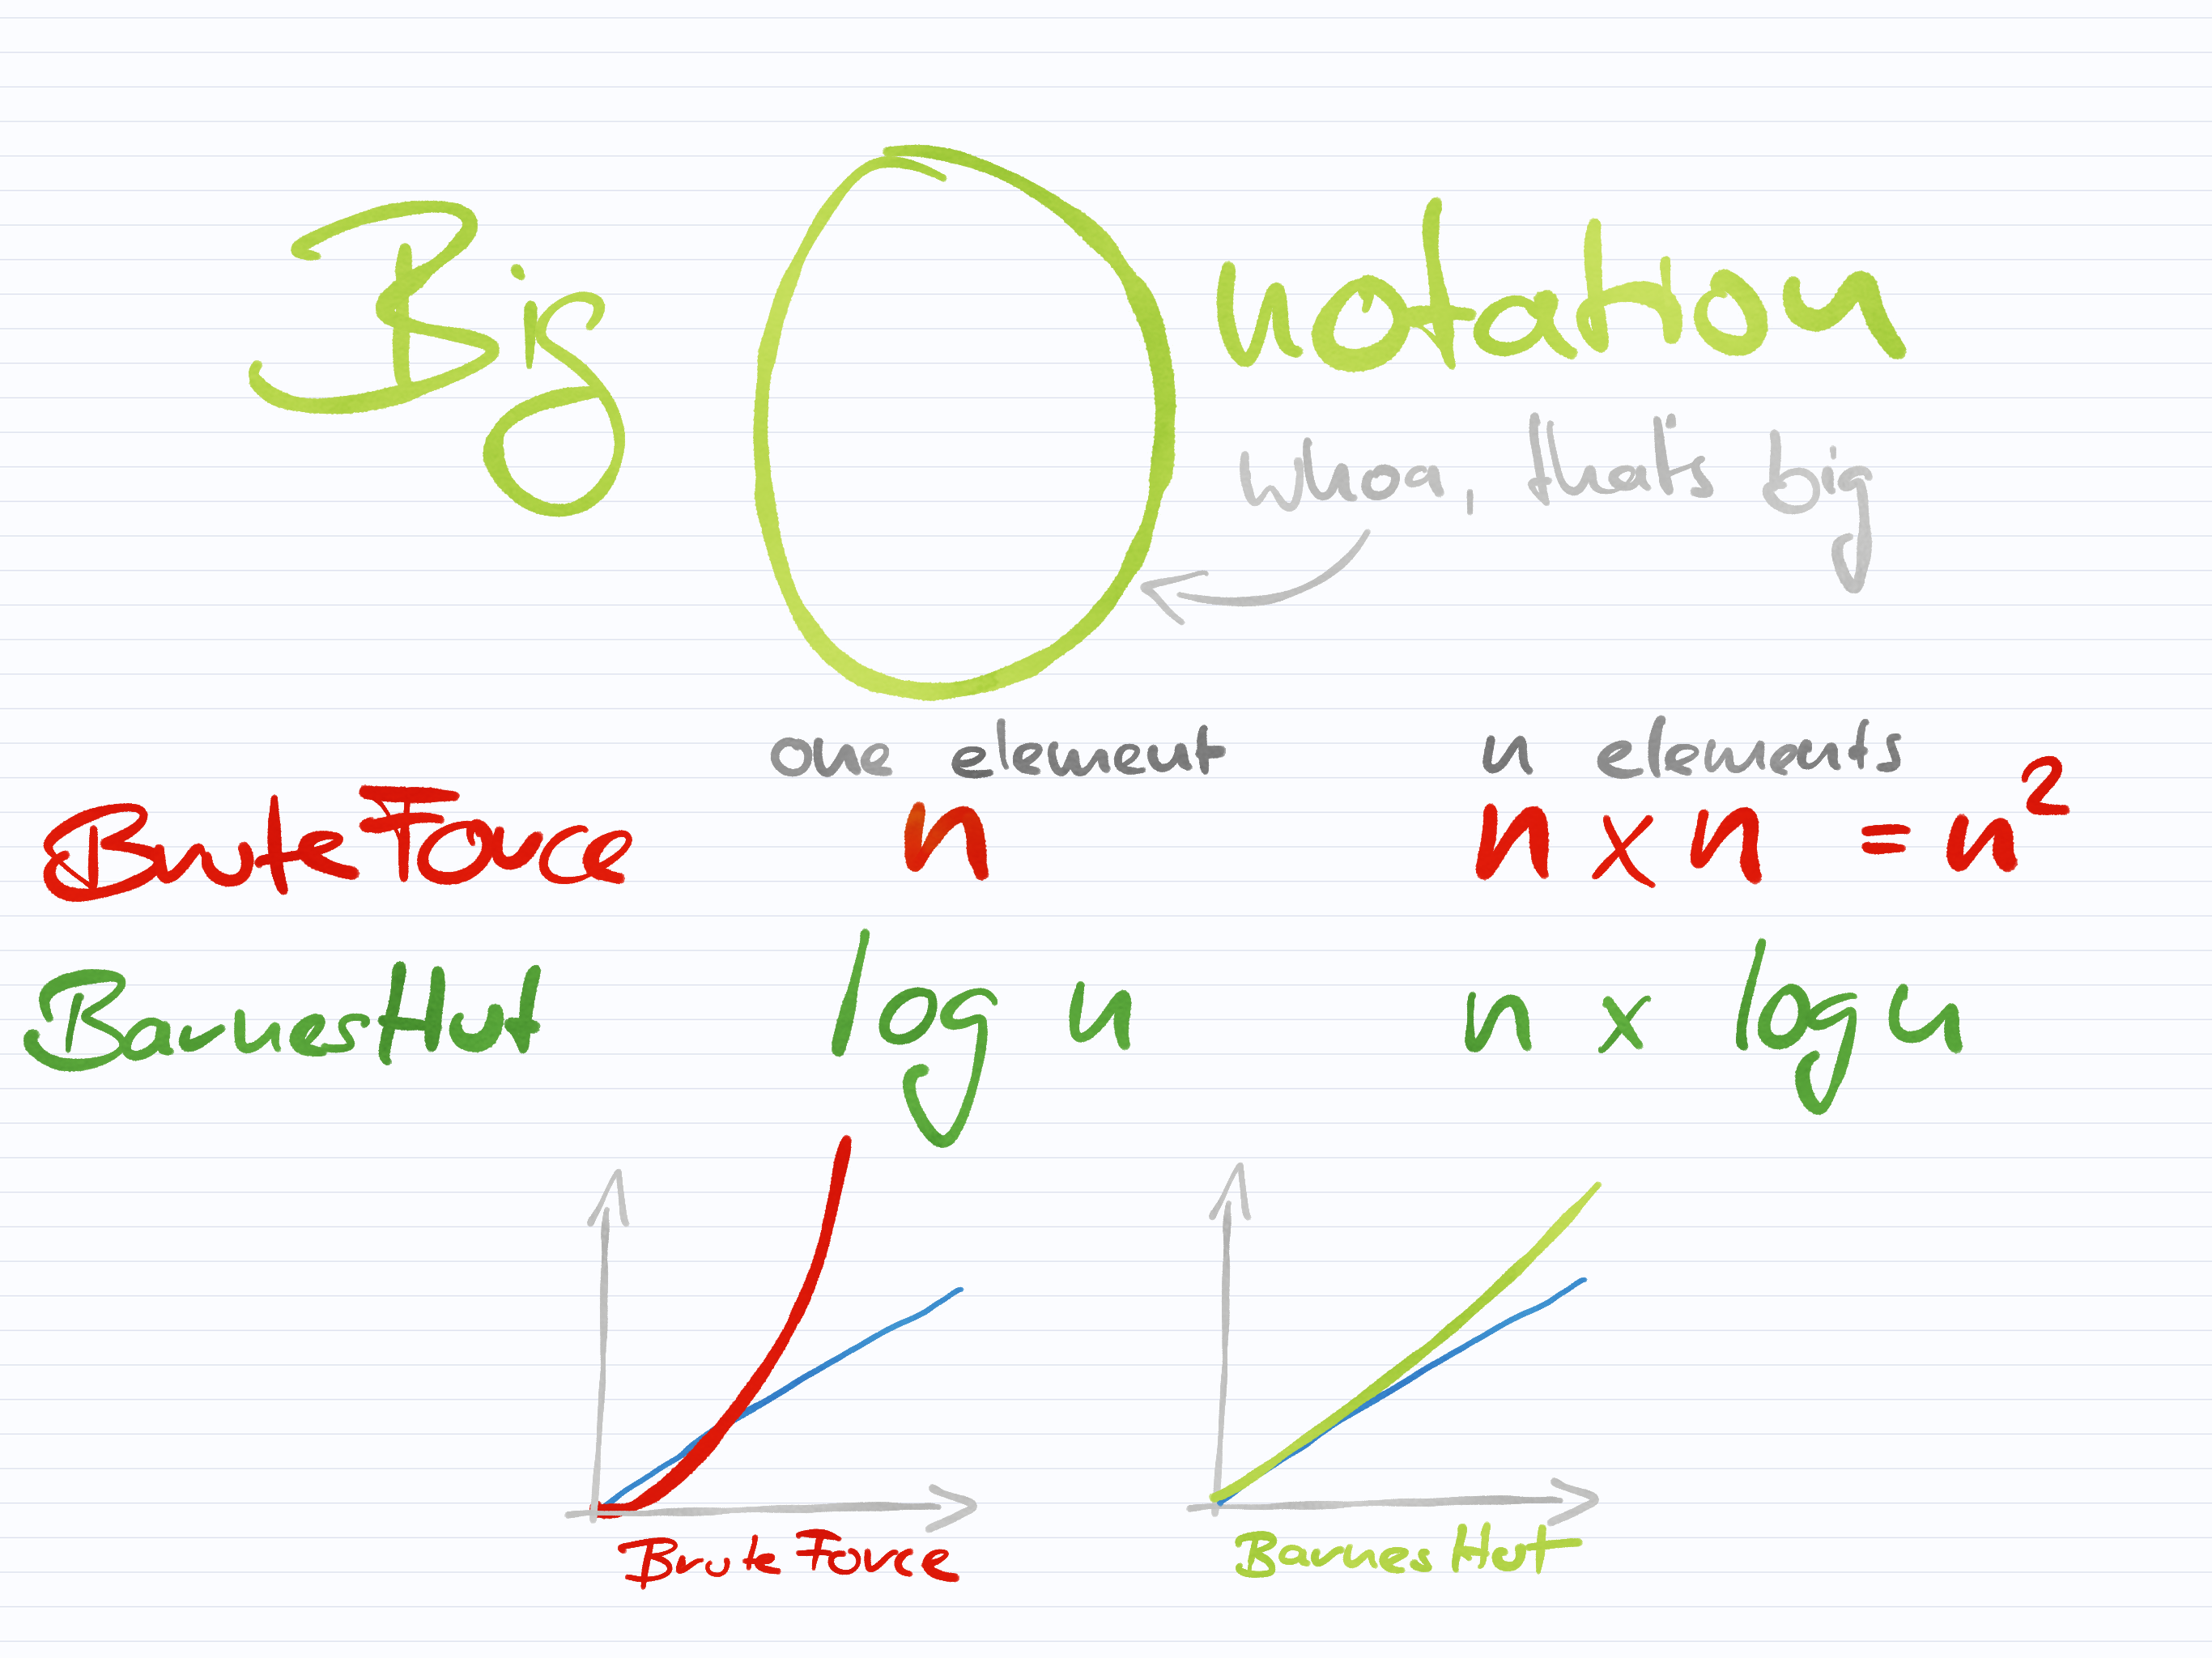 Big O notation
whoa, that's big
one element n elements
Brute Force n n x n = n²
BarnesHut log n n x log n
Brute Force Barnes Hut